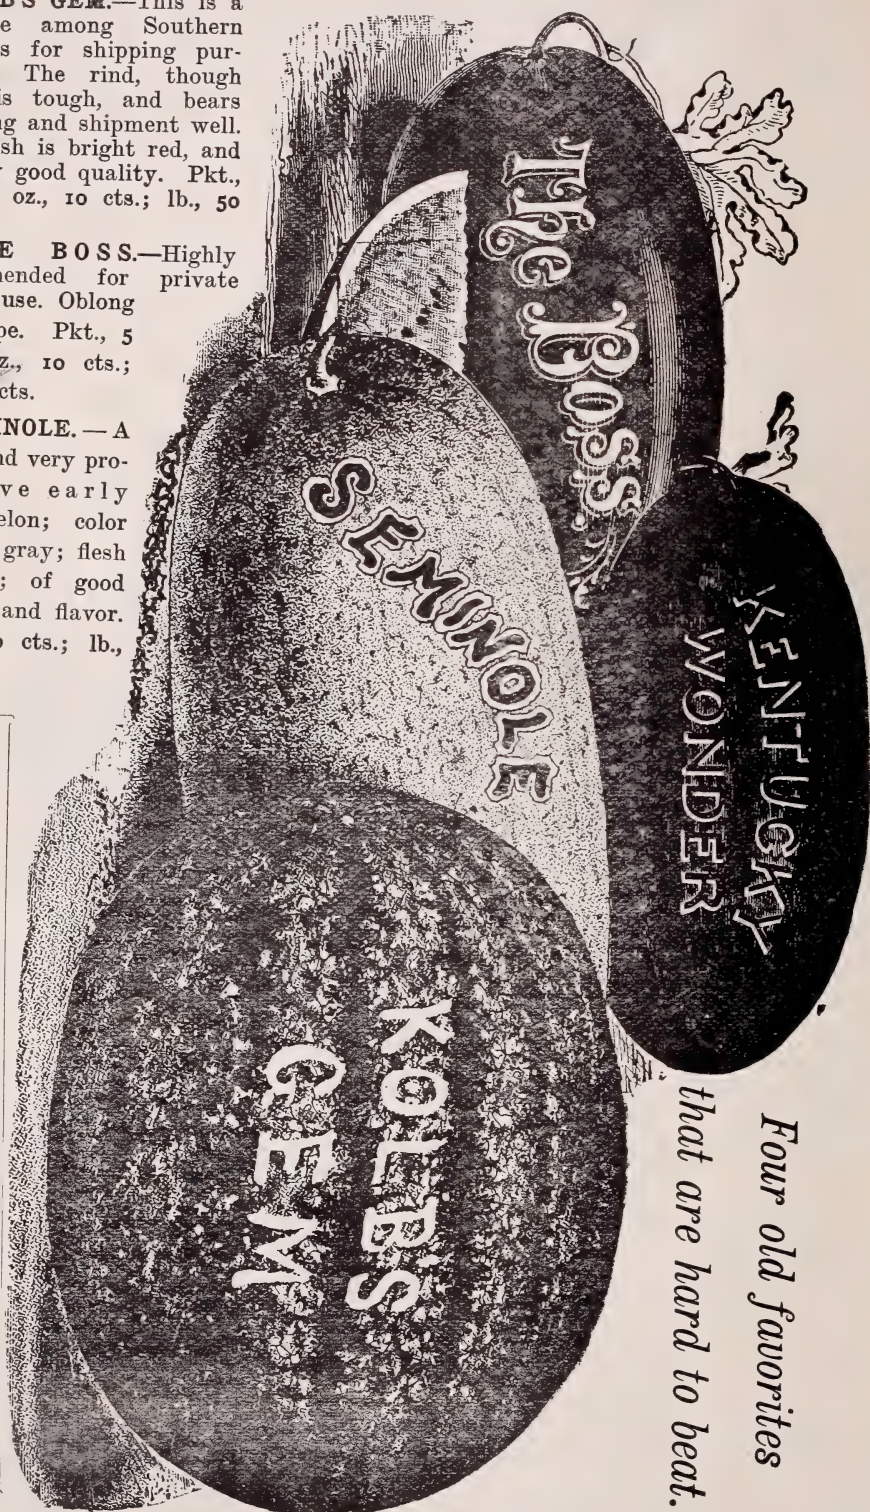 B'S GEM.—This is a
e among Southern
s for shipping pur-
The rind, though
is tough, and bears
ng and shipment well.
sh is bright red, and
good quality. Pkt.,
oz., 10 cts.; lb., 50
E BOSS.—Highly
mended for private
use. Oblong
pe. Pkt., 5
z., 10 cts.;
cts.
INOLE.—A
nd very pro-
ve early
elon; color
gray; flesh
; of good
and flavor.
cts.; lb.,
The Boss.
SEMINOLE
KENTUCKY
WONDER
KOLBS
GEM
Four old favorites
that are hard to beat.